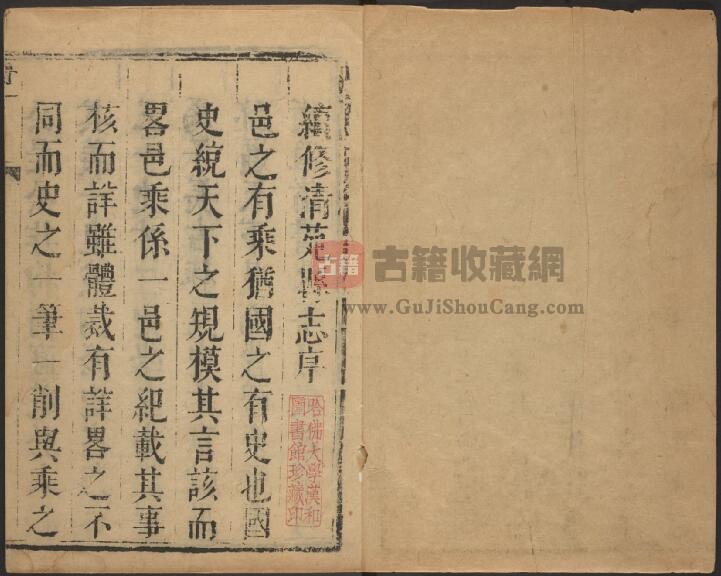 續修清苑縣志序
邑之有乘猶國之有史也國
史統天下之規模其言該而
畧邑乘係一邑之紀載其事
核而詳雖體裁有詳畧之不
同而史之一筆一削與乘之
哈佛大學漢和
圖書館珍藏印
古籍 古籍收藏網
www.GuJiShouCang.com